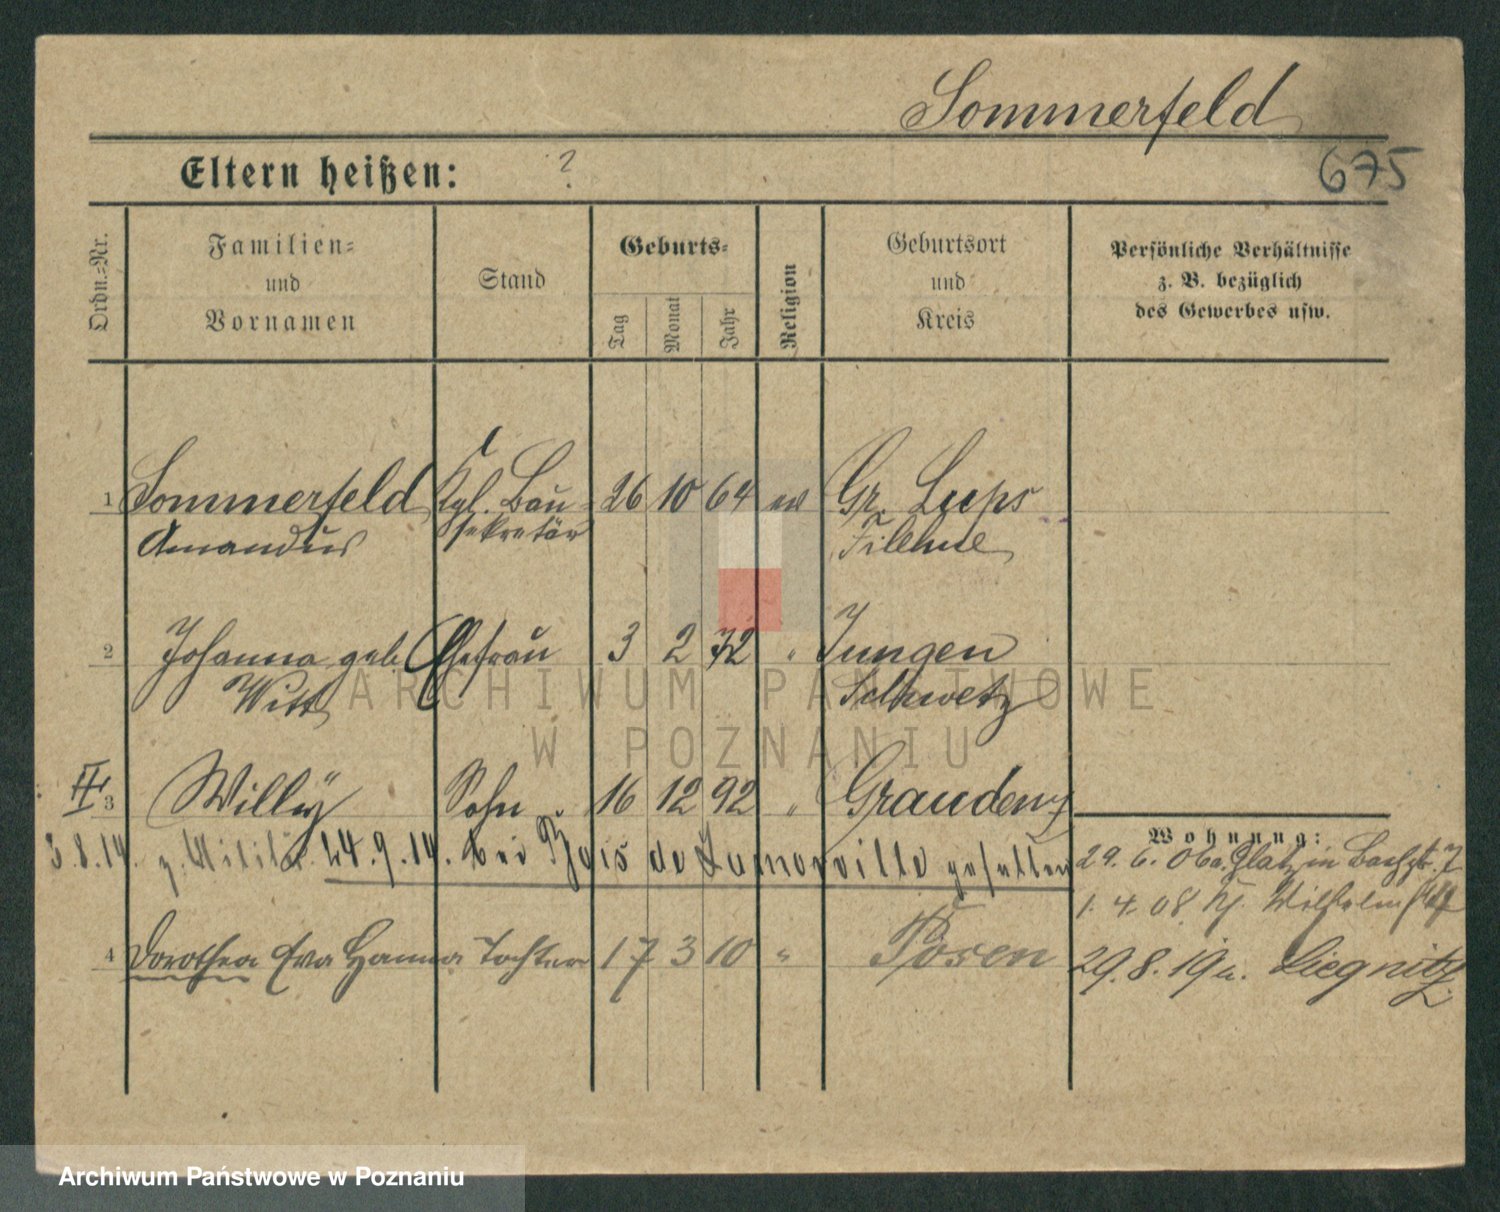 Sommerfeld
Eltern heißen: ?
675
Ordn.=Nr.
Familien=
und
Vornamen
Stand
Geburts=
Tag
Monat
Jahr
Religion
Geburtsort
und
Kreis
Persönliche Verhältnisse
z. B. bezüglich
des Gewerbes usw.
1 Sommerfeld Kgl. Bau= 26 10 64 ev Gr. Lups
Amandus sekretär Filehne
2 Johanna geb. Ehefrau 3 2 72 " Jungen
Witt Schwetz
ARCHIWUM PAŃSTWOWE
W POZNANIU
III 3 Willy Sohn 16 12 92 " Graudenz
3.8.14. z. Militär. 24.9.14. bei de Lamorville gefallen
Wohnung:
29. 6. 06 a. Glatz in 7
1. 4. 08
4 Dorothea Eva Hanna Tochter 17 3 10 " Posen
29. 8. 19 n. Liegnitz
Archiwum Państwowe w Poznaniu